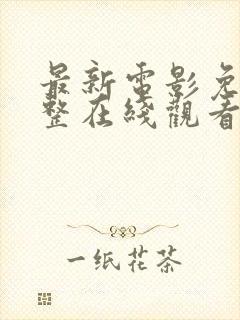 最新電影免
整在綫觀看
一纸花茶